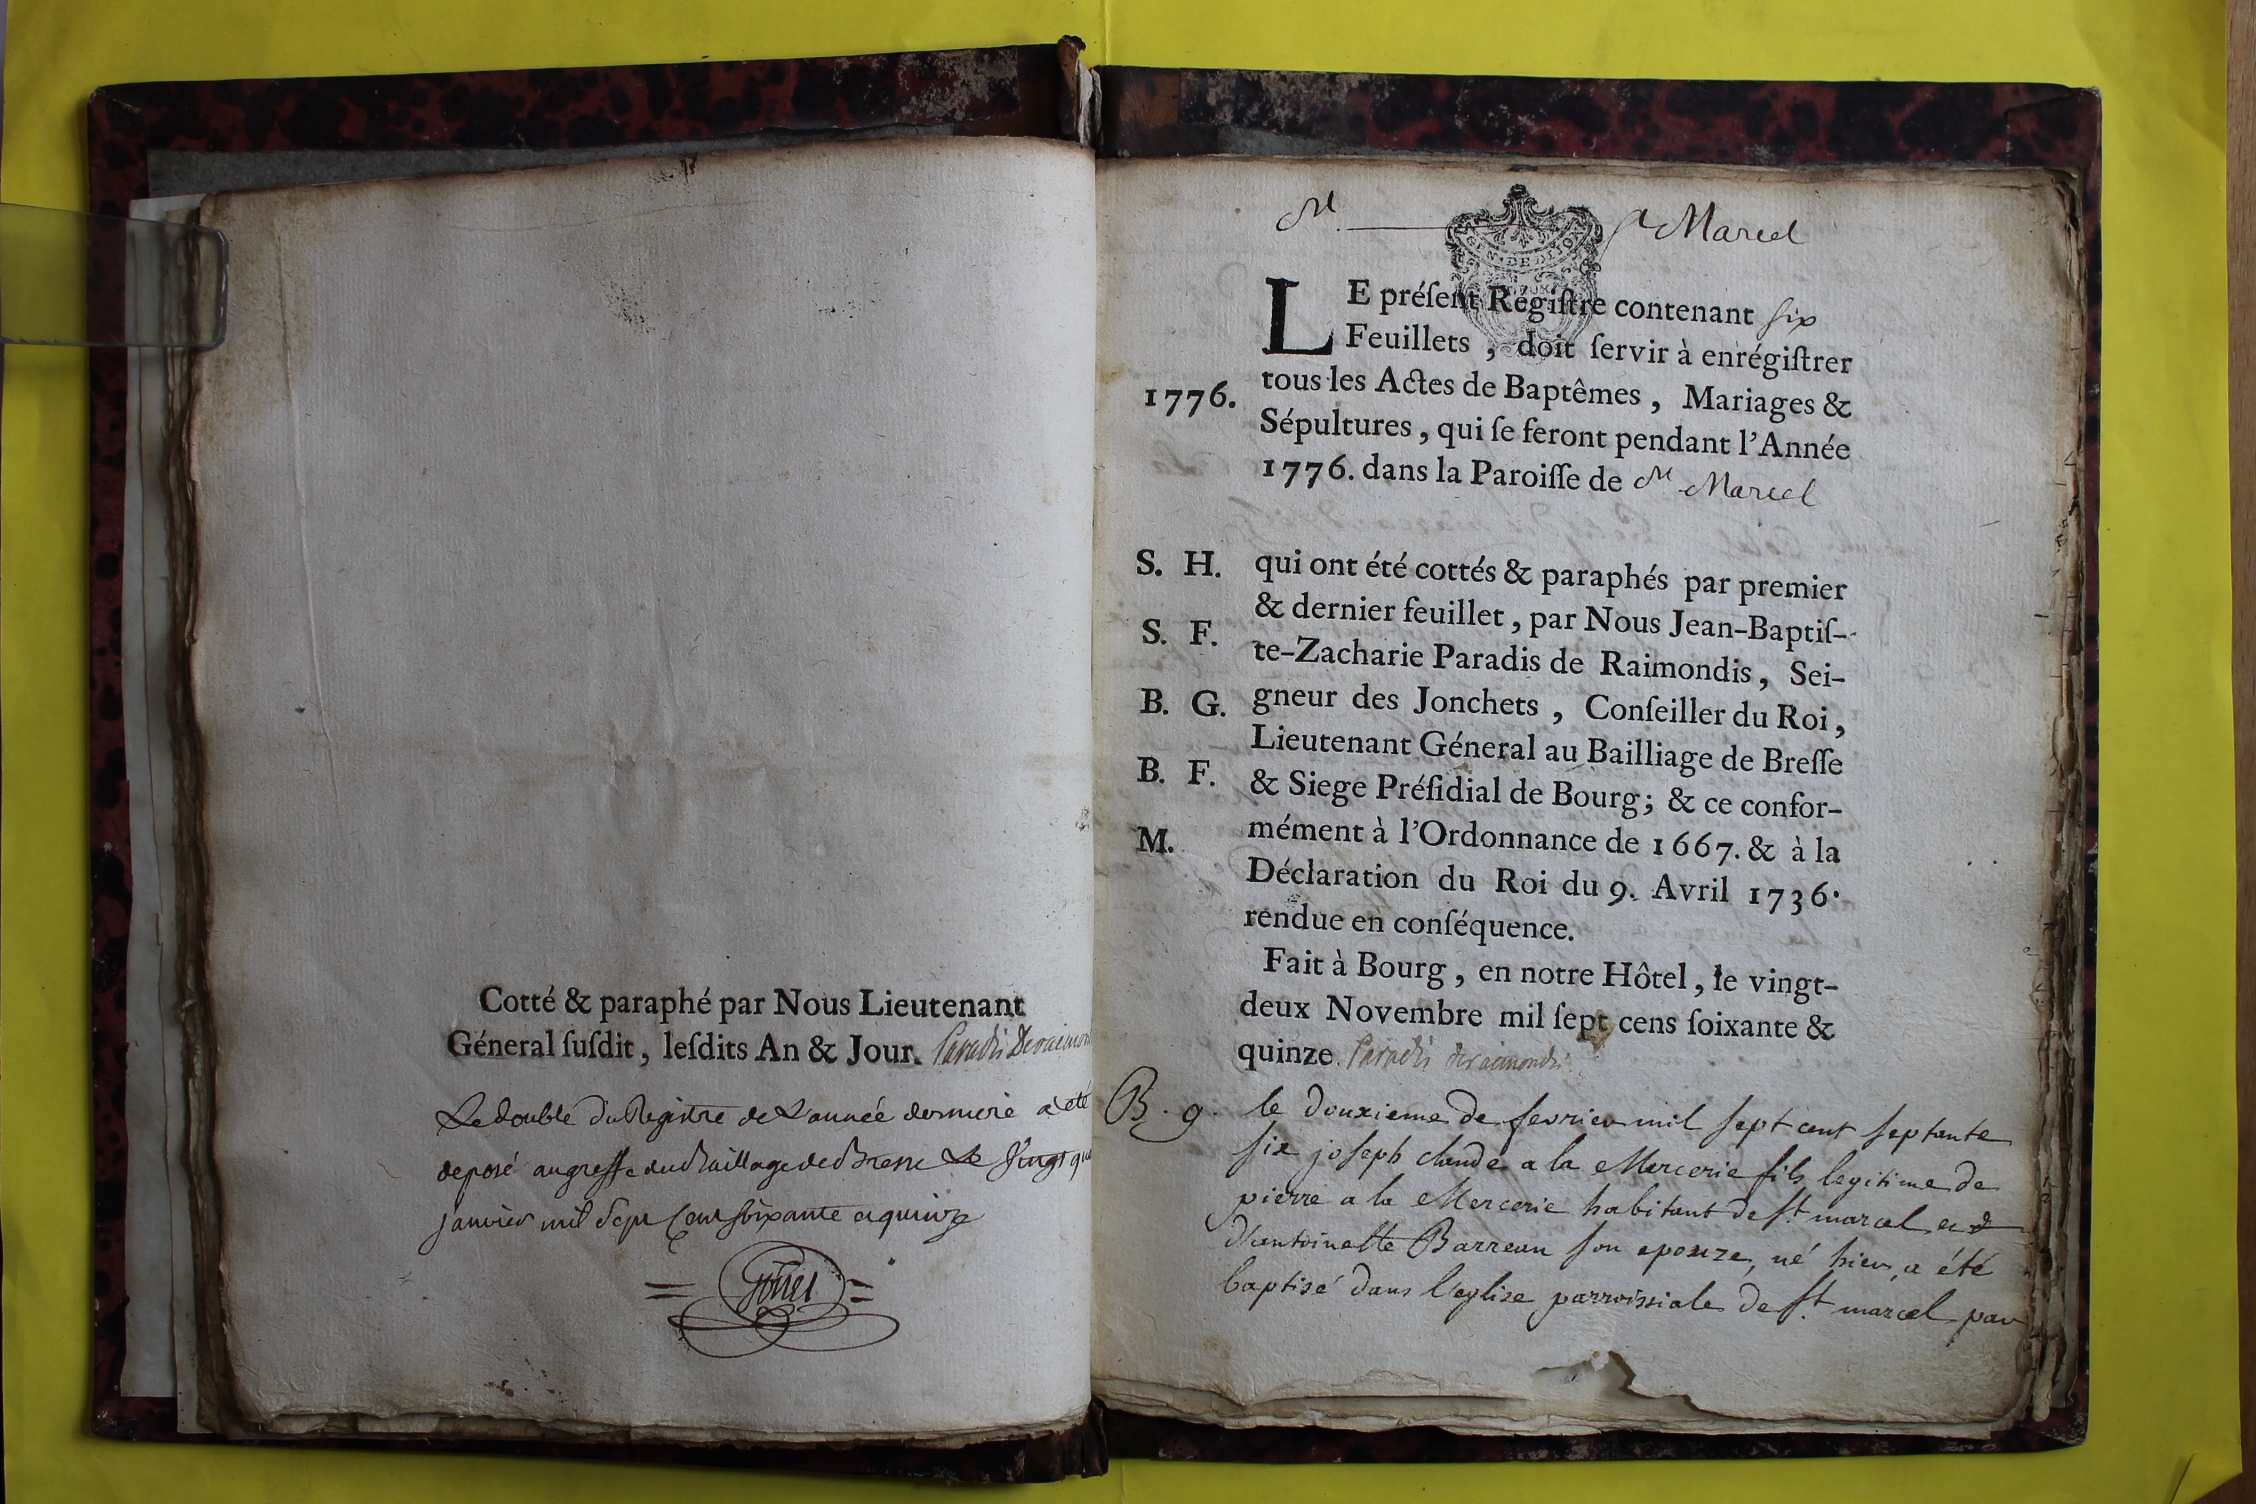 Cotté & paraphé par Nous Lieutenant
Géneral ſuſdit, leſdits An & Jour. Paradis Deraimon
Le double du Registre de L'année derniere a été
deposé au greffe du Baillage de Bresse Le Vingt qua
janvier mil Sept Cent soixante et quinze
St Marcel
GEN. DE DIJON
LE préſent Régiſtre contenant six
Feuillets, doit ſervir à enrégiſtrer
tous les Actes de Baptêmes, Mariages &
1776. Sépultures, qui ſe feront pendant l'Année
1776. dans la Paroiſſe de St Marcel
S. H. qui ont été cottés & paraphés par premier
& dernier feuillet, par Nous Jean-Baptiſ-
S. F. te-Zacharie Paradis de Raimondis, Sei-
B. G. gneur des Jonchets, Conſeiller du Roi,
Lieutenant Géneral au Bailliage de Breſſe
B. F. & Siege Préſidial de Bourg; & ce confor-
M. mément à l'Ordonnance de 1667. & à la
Déclaration du Roi du 9. Avril 1736.
rendue en conſéquence.
Fait à Bourg, en notre Hôtel, le vingt-
deux Novembre mil ſept cens ſoixante &
quinze. Paradis deraimondis
B. g. le douxieme de fevrier mil sept cent septante
six joseph claude a la Mercerie fils legitime de
pierre a la Mercerie habitant de St marcel et
d'antoinette Barreau son epouze, né hier, a été
baptisé dans l'eglise parroissiale de St marcel par